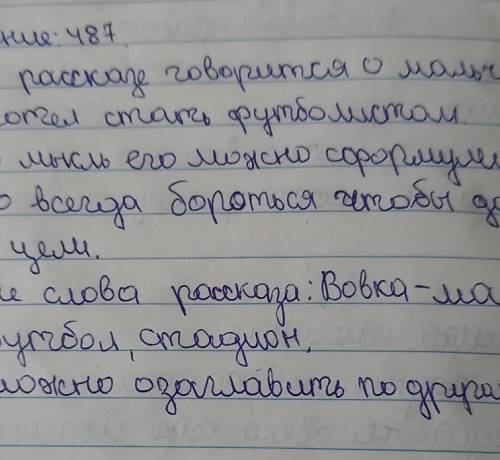 ние: 487.
рассказе говорится о мальч
отел стать футболистом
мысль его можно сформули
о всегда бороться чтобы до
цели.
е слова рассказа: Вовка-ма
утбол, стадион,
можно озаглавить по друго